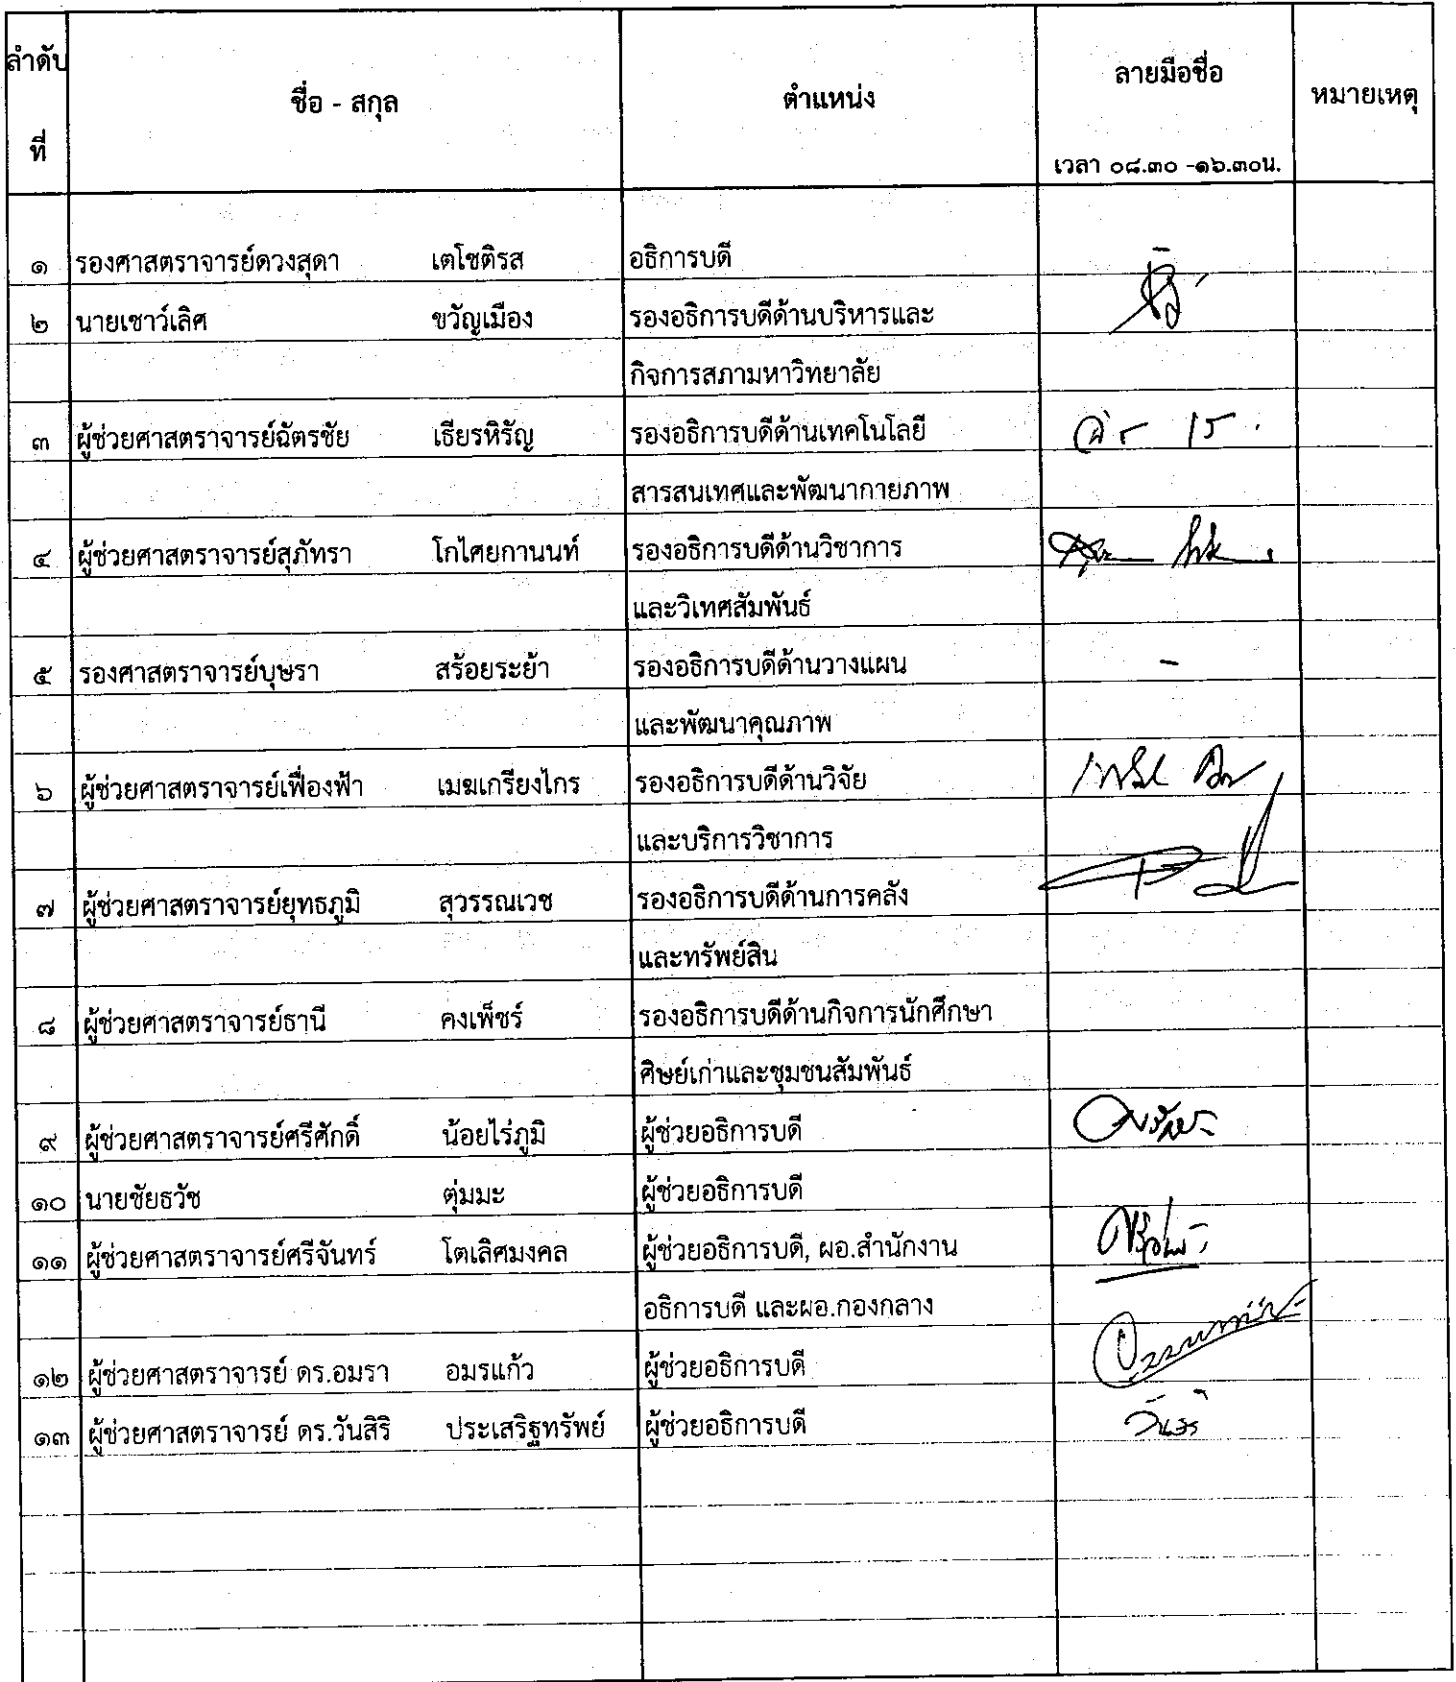 ลำดับ
ที่
ชื่อ - สกุล
ตำแหน่ง
ลายมือชื่อ
เวลา ๐๘.๓๐ -๑๖.๓๐น.
หมายเหตุ
๑ รองศาสตราจารย์ดวงสุดา เตโชติรส อธิการบดี
๒ นายเชาว์เลิศ ขวัญเมือง รองอธิการบดีด้านบริหารและ
กิจการสภามหาวิทยาลัย
๓ ผู้ช่วยศาสตราจารย์ฉัตรชัย เธียรหิรัญ รองอธิการบดีด้านเทคโนโลยี
สารสนเทศและพัฒนากายภาพ
๔ ผู้ช่วยศาสตราจารย์สุภัทรา โกไศยกานนท์ รองอธิการบดีด้านวิชาการ
และวิเทศสัมพันธ์
๕ รองศาสตราจารย์บุษรา สร้อยระย้า รองอธิการบดีด้านวางแผน -
และพัฒนาคุณภาพ
๖ ผู้ช่วยศาสตราจารย์เฟื่องฟ้า เมฆเกรียงไกร รองอธิการบดีด้านวิจัย
และบริการวิชาการ
๗ ผู้ช่วยศาสตราจารย์ยุทธภูมิ สุวรรณเวช รองอธิการบดีด้านการคลัง
และทรัพย์สิน
๘ ผู้ช่วยศาสตราจารย์ธานี คงเพ็ชร์ รองอธิการบดีด้านกิจการนักศึกษา
ศิษย์เก่าและชุมชนสัมพันธ์
๙ ผู้ช่วยศาสตราจารย์ศรีศักดิ์ น้อยไร่ภูมิ ผู้ช่วยอธิการบดี
๑๐ นายชัยธวัช ตุ่มมะ ผู้ช่วยอธิการบดี
๑๑ ผู้ช่วยศาสตราจารย์ศรีจันทร์ โตเลิศมงคล ผู้ช่วยอธิการบดี, ผอ.สำนักงาน
อธิการบดี และผอ.กองกลาง
๑๒ ผู้ช่วยศาสตราจารย์ ดร.อมรา อมรแก้ว ผู้ช่วยอธิการบดี
๑๓ ผู้ช่วยศาสตราจารย์ ดร.วันสิริ ประเสริฐทรัพย์ ผู้ช่วยอธิการบดี